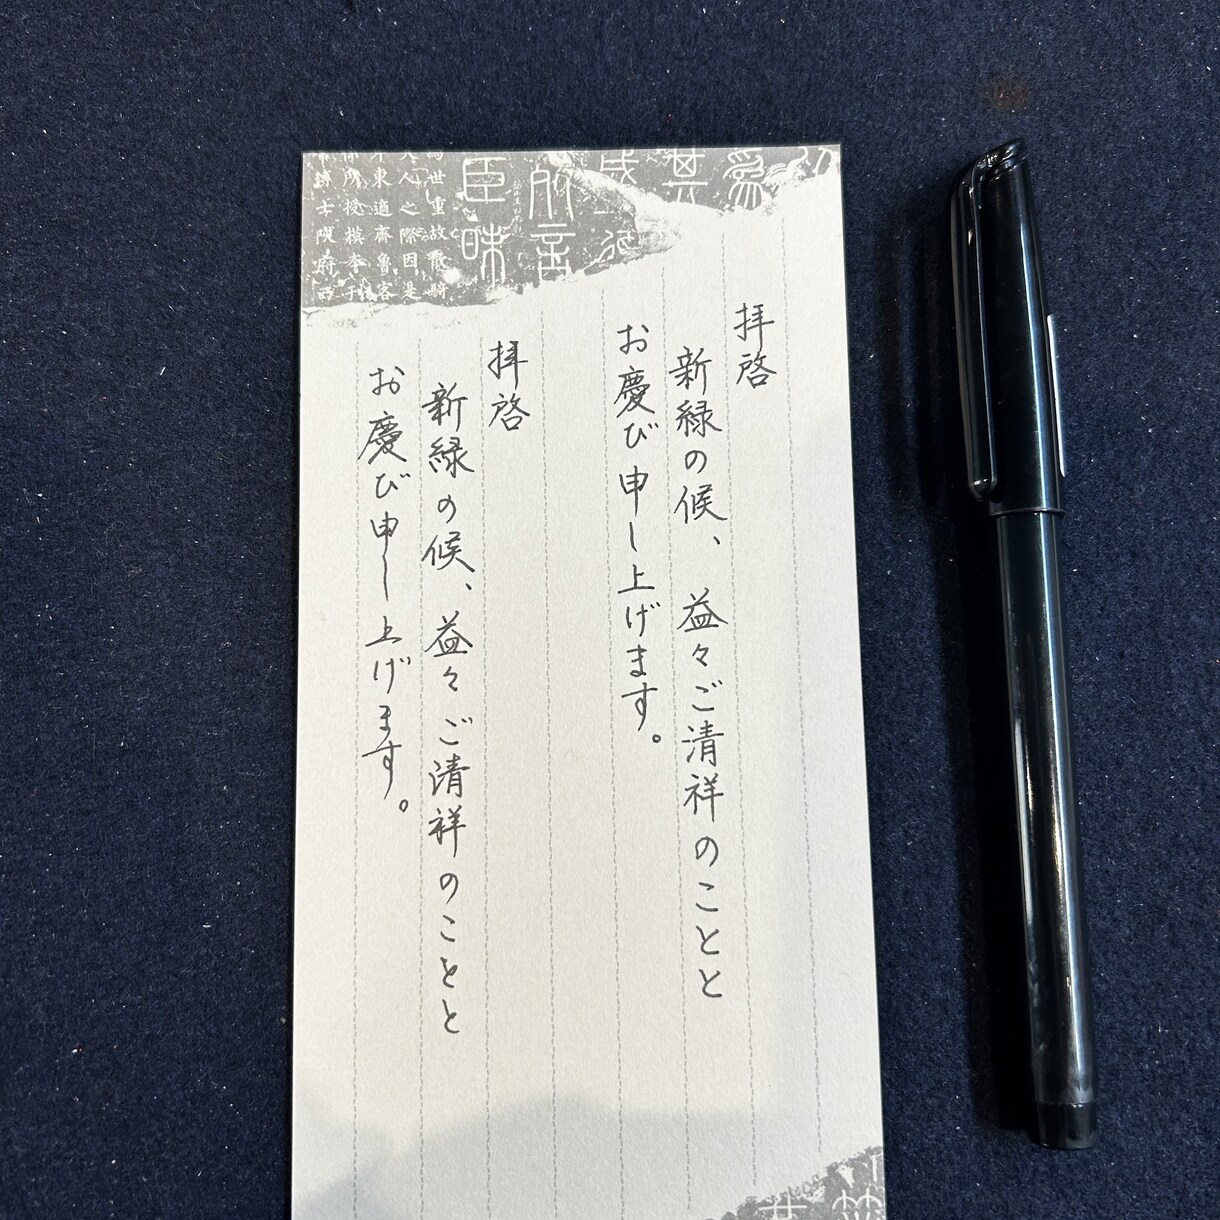 拝啓
新緑の候、益々ご清祥のことと
お慶び申し上げます。
拝啓
新緑の候、益々ご清祥のことと
お慶び申し上げます。